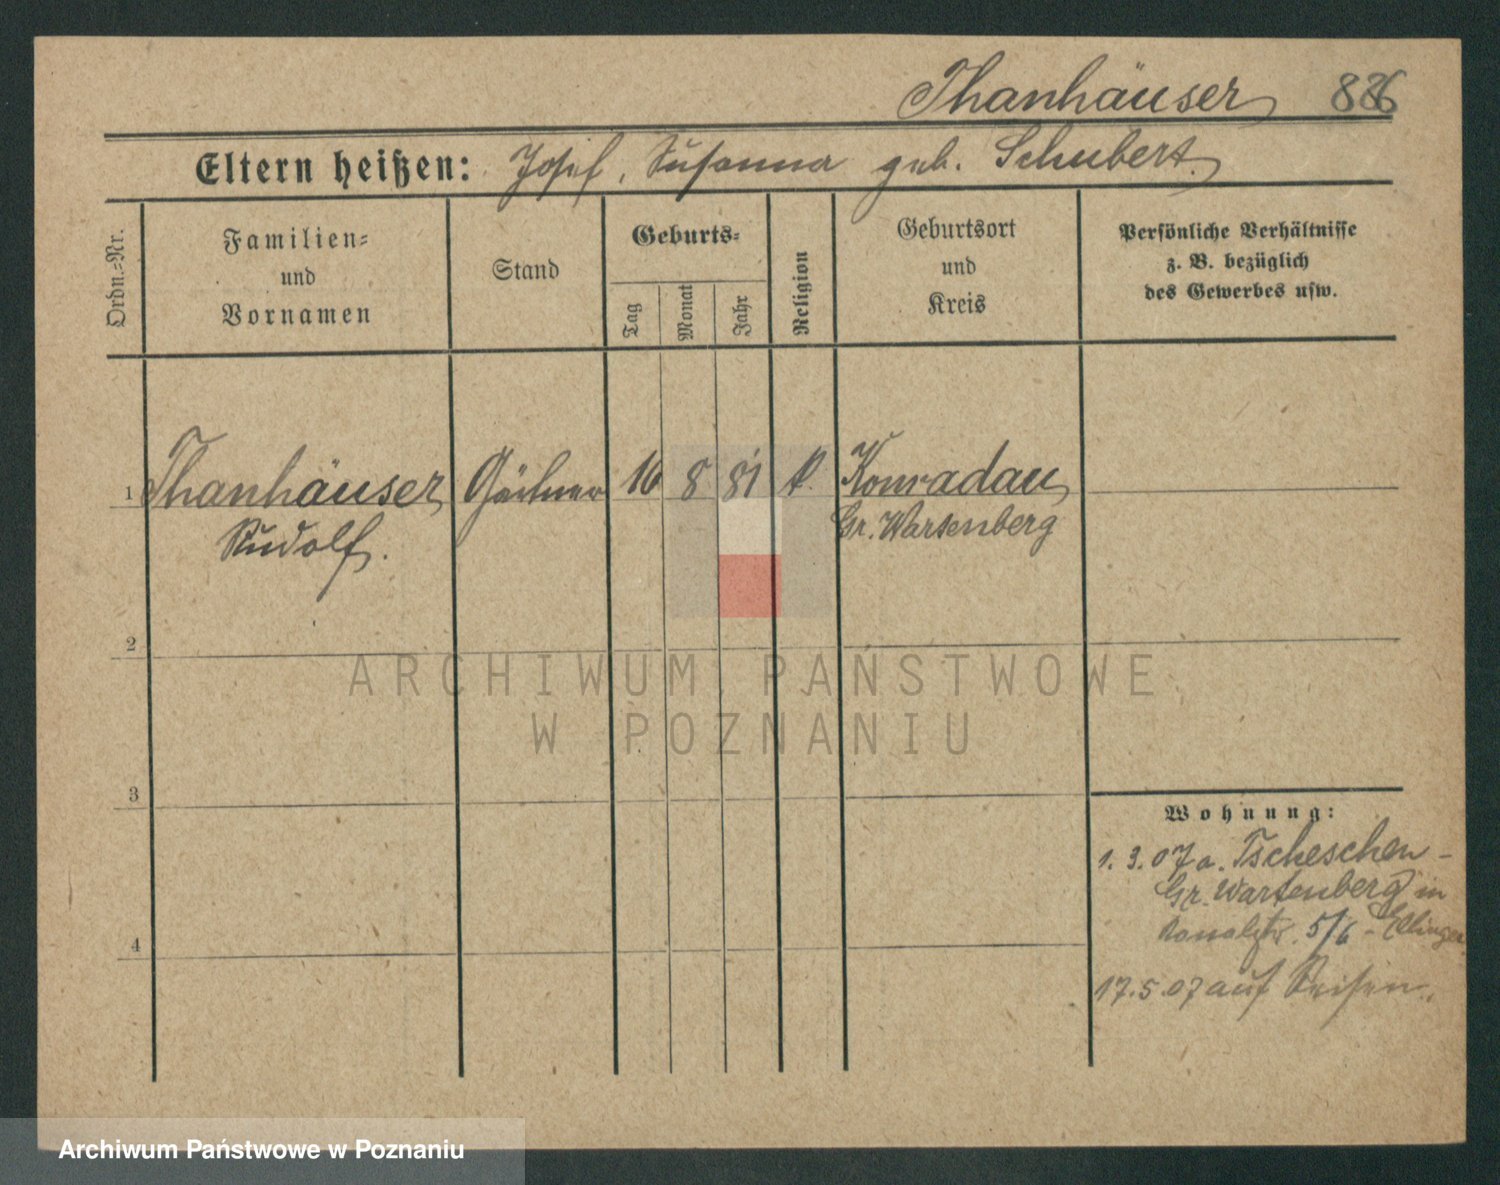 Thanhäuser 886
Eltern heißen: Josef, Susanna geb. Schubert.
Ordn.-Nr.
Familien- und Vornamen
Stand
Geburts-
Tag
Monat
Jahr
Religion
Geburtsort und Kreis
Persönliche Verhältnisse z. B. bezüglich des Gewerbes usw.
1 Thanhäuser Gärtner 16 8 81 k. Konradau
Rudolf. Gr. Wartenberg
2
3
4
Wohnung:
1.3.07 a. Tscheschen-
Gr. Wartenberg in
Kanalstr. 5/6 - Ellinger
17.5.07 auf Reisen.
ARCHIWUM PAŃSTWOWE
W POZNANIU
Archiwum Państwowe w Poznaniu